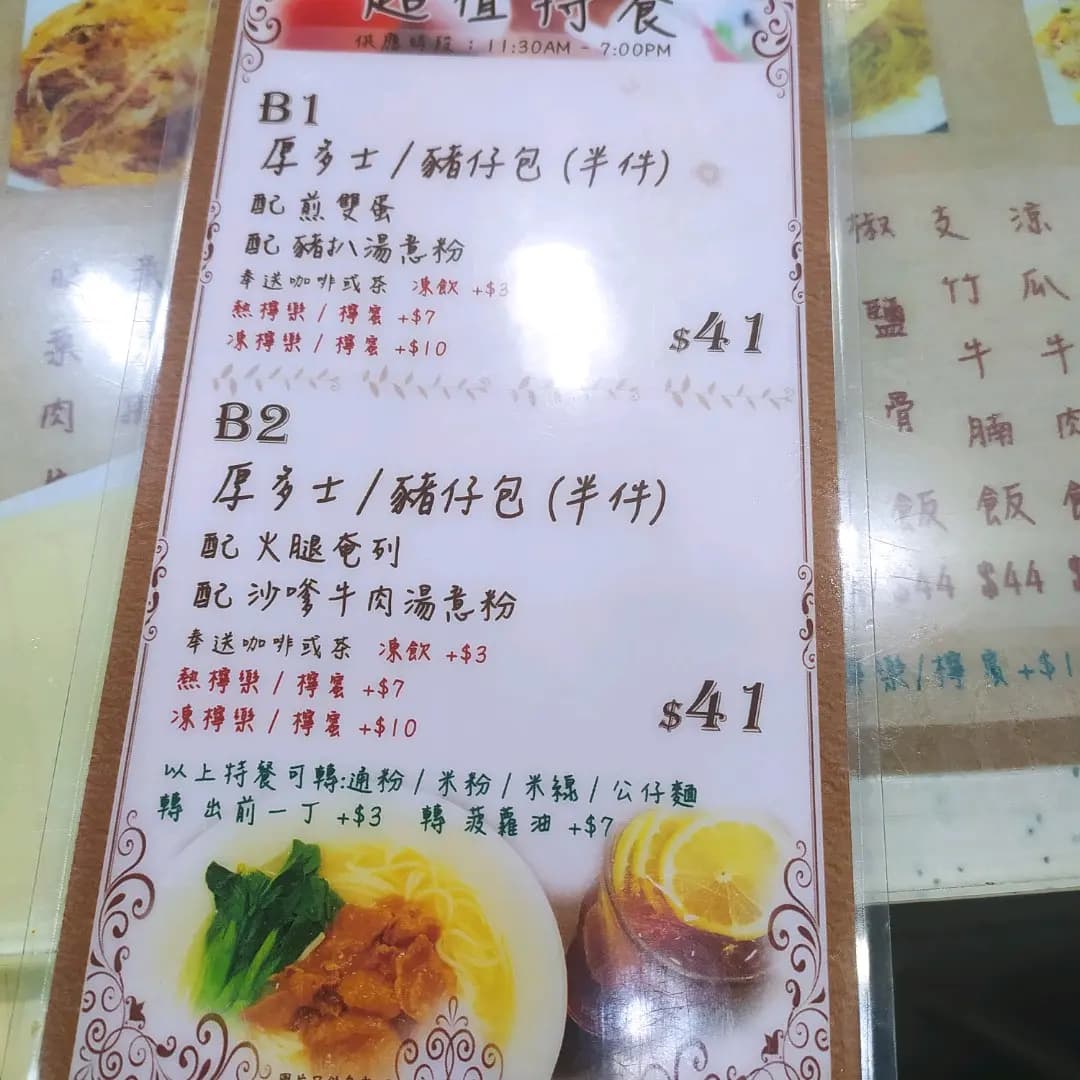 超值特餐
供應時段：11:30AM - 7:00PM
B1
厚多士/豬仔包(半件)
配煎雙蛋
配豬扒湯意粉
奉送咖啡或茶 凍飲 +$3
熱檸樂/檸蜜 +$7
凍檸樂/檸蜜 +$10
$41
B2
厚多士/豬仔包(半件)
配火腿奄列
配沙嗲牛肉湯意粉
奉送咖啡或茶 凍飲 +$3
熱檸樂/檸蜜 +$7
凍檸樂/檸蜜 +$10
$41
以上特餐可轉:通粉/米粉/米線/公仔麵
轉出前一丁 +$3 轉菠蘿油 +$7
椒鹽骨飯 $44
支竹牛腩飯 $44
涼瓜牛肉
樂/檸蜜 +$1
肉